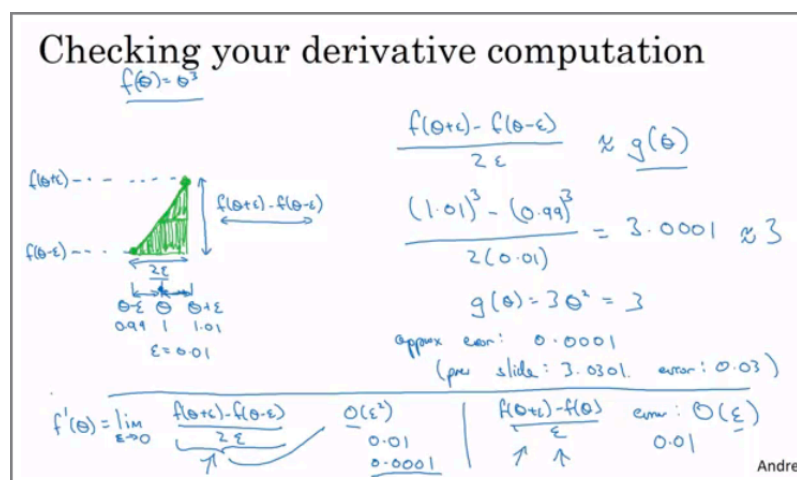 Checking your derivative computation
f(θ) = θ³
f(θ+ε) - f(θ-ε)
2ε
≈ g(θ)
f(θ+ε)
f(θ+ε) - f(θ-ε)
f(θ-ε)
2ε
(1.01)³ - (0.99)³
2(0.01)
= 3.0001 ≈ 3
θ-ε θ θ+ε
0.99 1 1.01
ε = 0.01
g(θ) = 3θ² = 3
approx error: 0.0001
(prev slide: 3.0301. error: 0.03)
f'(θ) = lim
ε→0
f(θ+ε) - f(θ-ε)
2ε
O(ε²)
0.01
0.0001
f(θ+ε) - f(θ)
ε
error: O(ε)
0.01
Andre